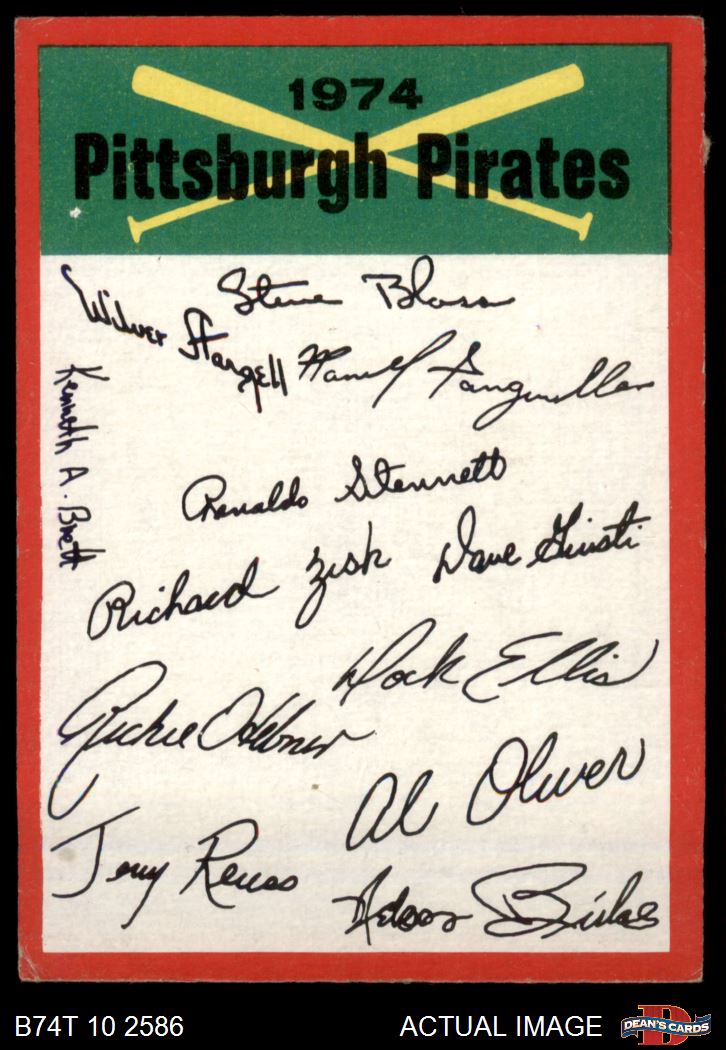 1974
Pittsburgh Pirates
Steve Blass
Wilver Stargell
Manuel Sanguillen
Kenneth A. Brett
Renaldo Stennett
Richard Zisk
Dave Giusti
Dock Ellis
Richie Hebner
Al Oliver
Jerry Reuss
Nelson Briles
B74T 10 2586
ACTUAL IMAGE
D
DEAN'S CARDS